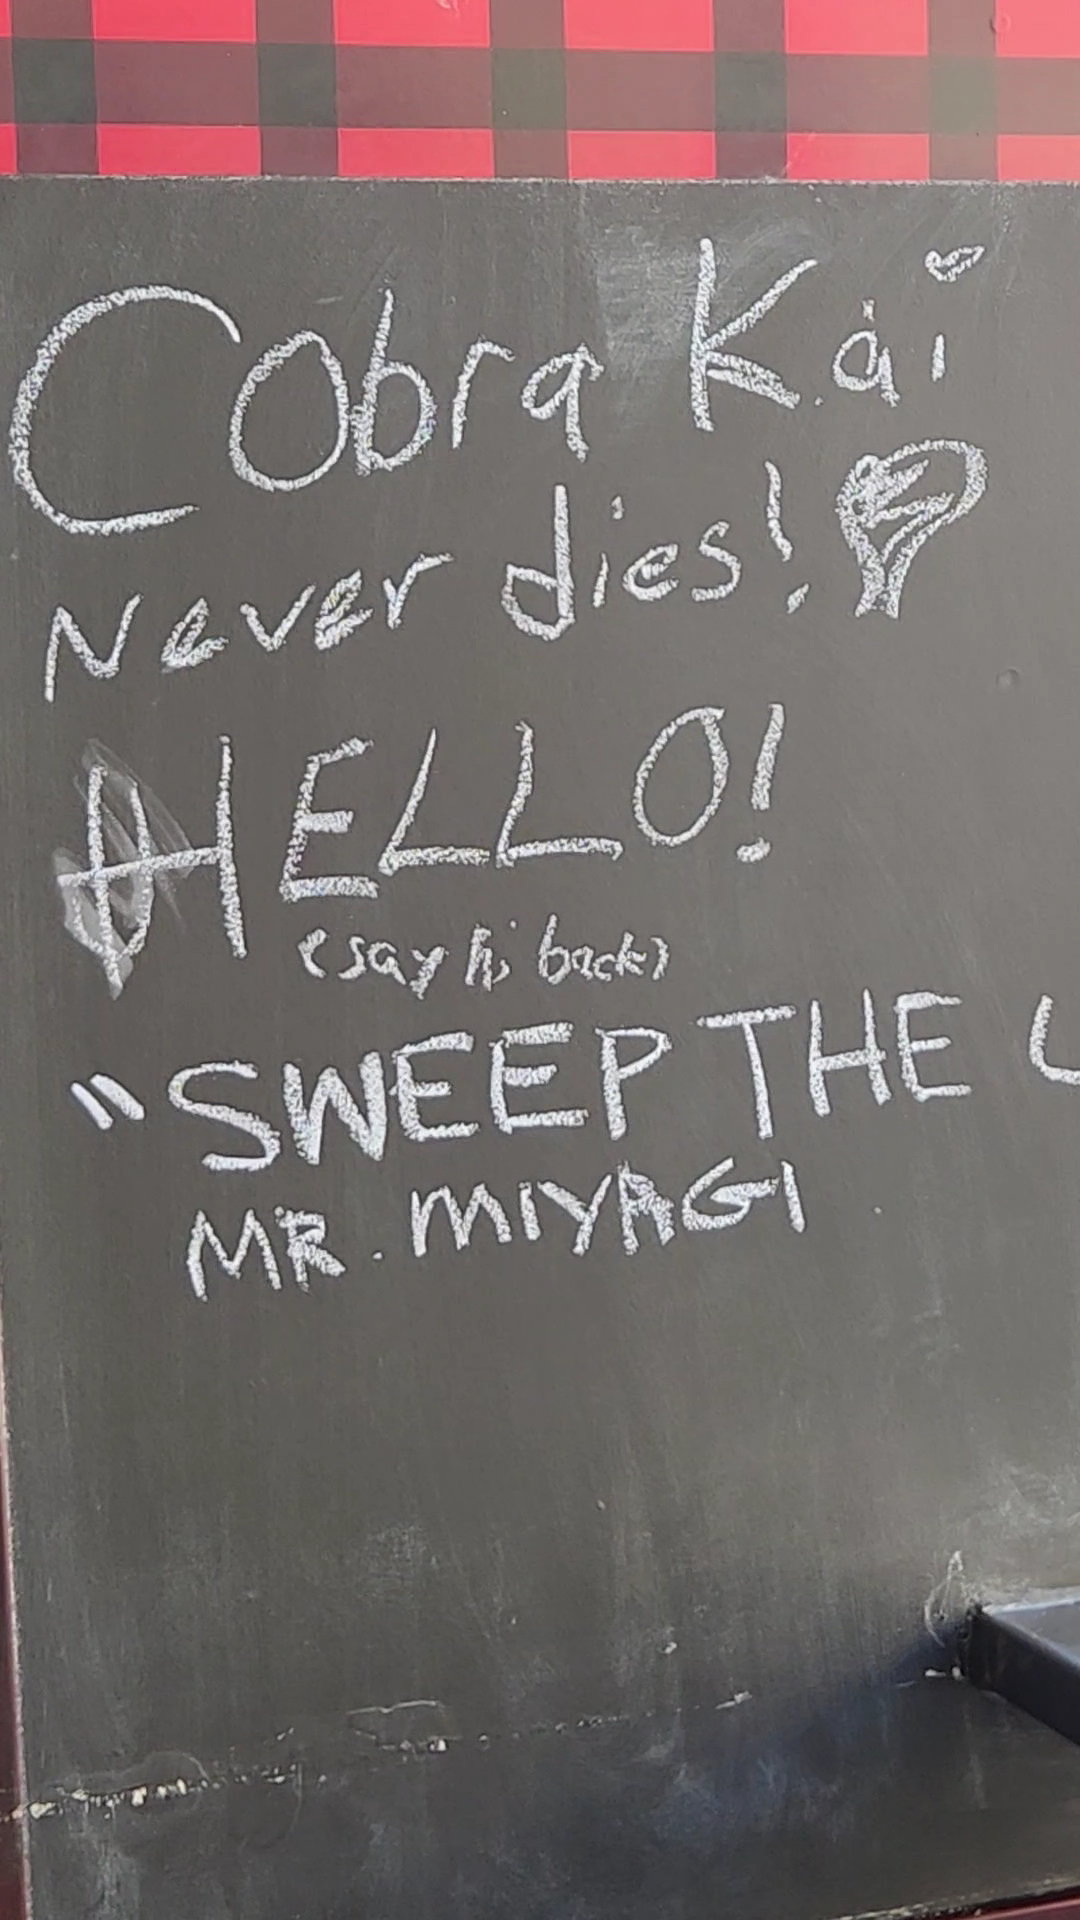 Cobra Kai
Never dies!
HELLO!
(say hi back)
"SWEEP THE L
MR. MIYAGI